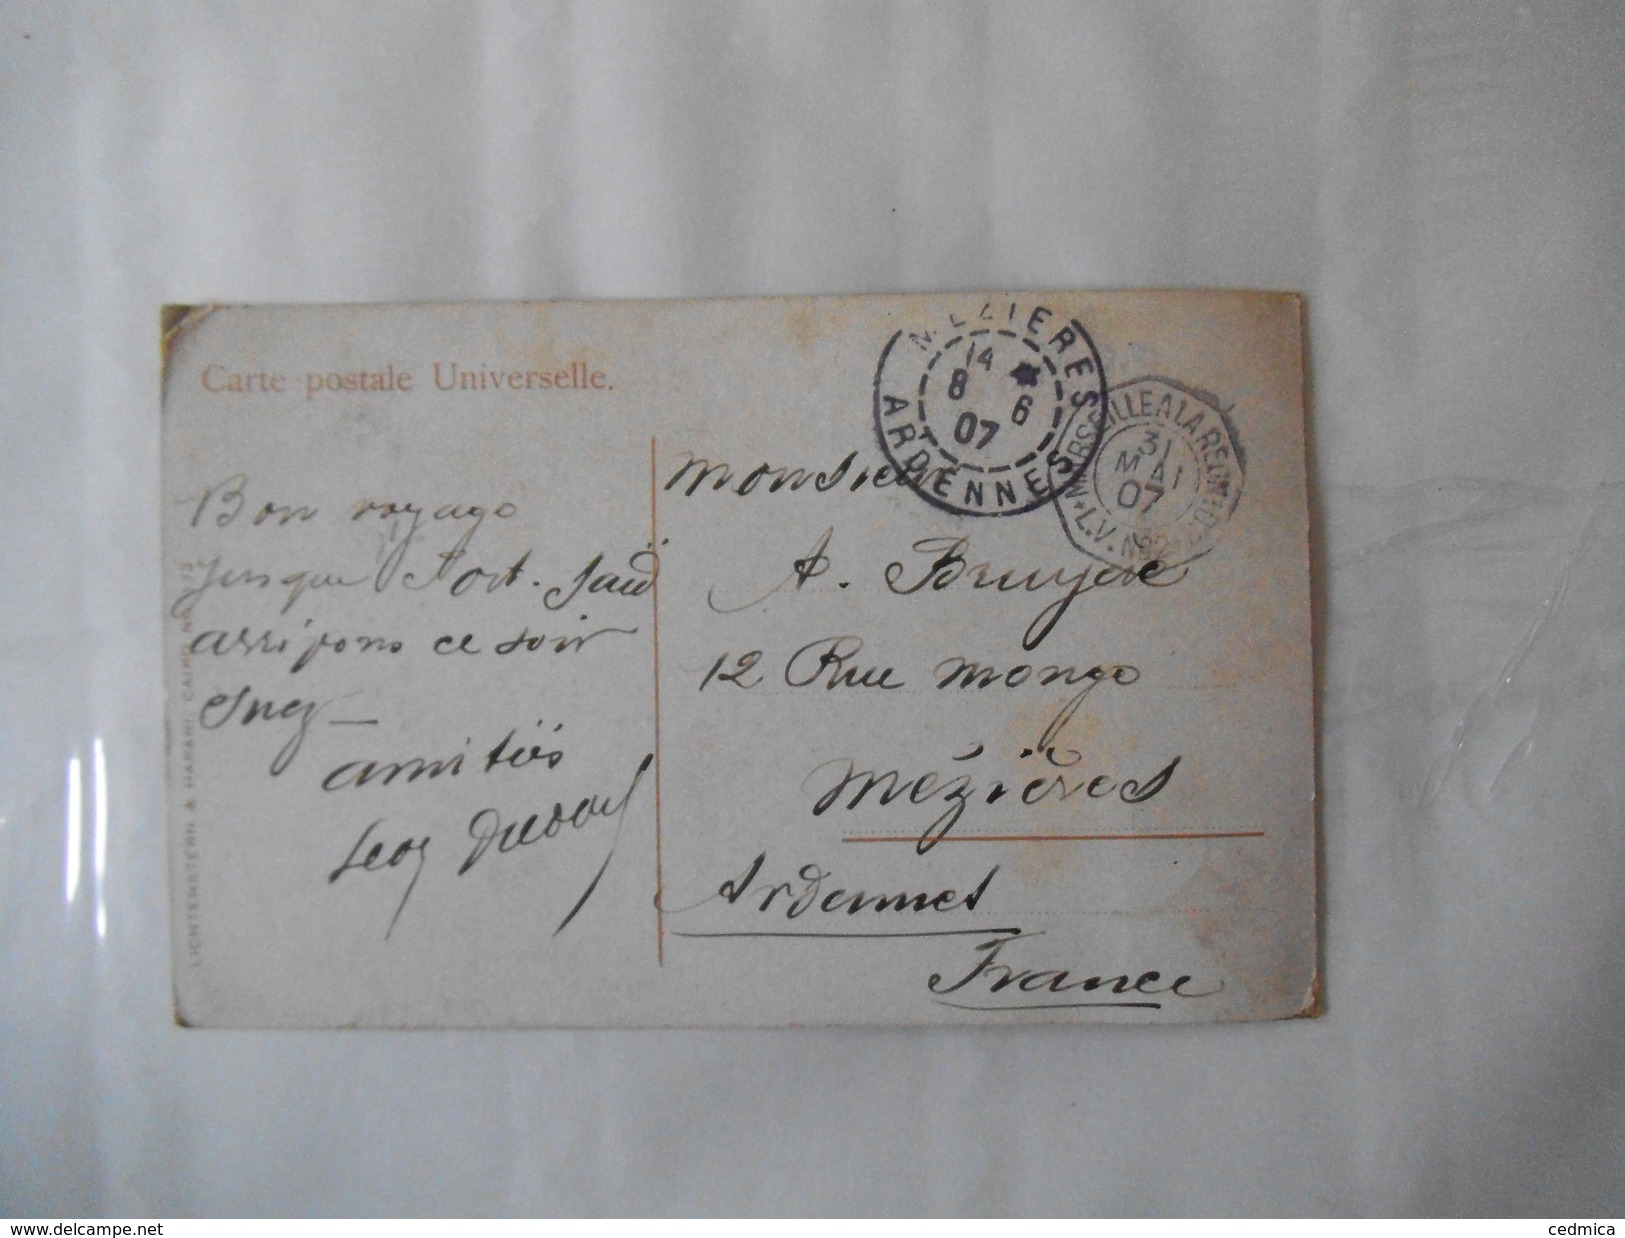 Carte postale Universelle.
Bon voyage
jusque Port-Saïd
arrivons ce soir
Suez -
amitiés
LICHTENSTERN & HARARI, CAIRO. No. 73
MÉZIÈRES
14 *
8 6
07
ARDENNES
MARSEILLE A LA REUNION
31
MAI
07
L.V. No
Monsieur
A. Bruyère
12 Rue Monge
Mézières
Ardennes
France
www.delcampe.net
cedmica